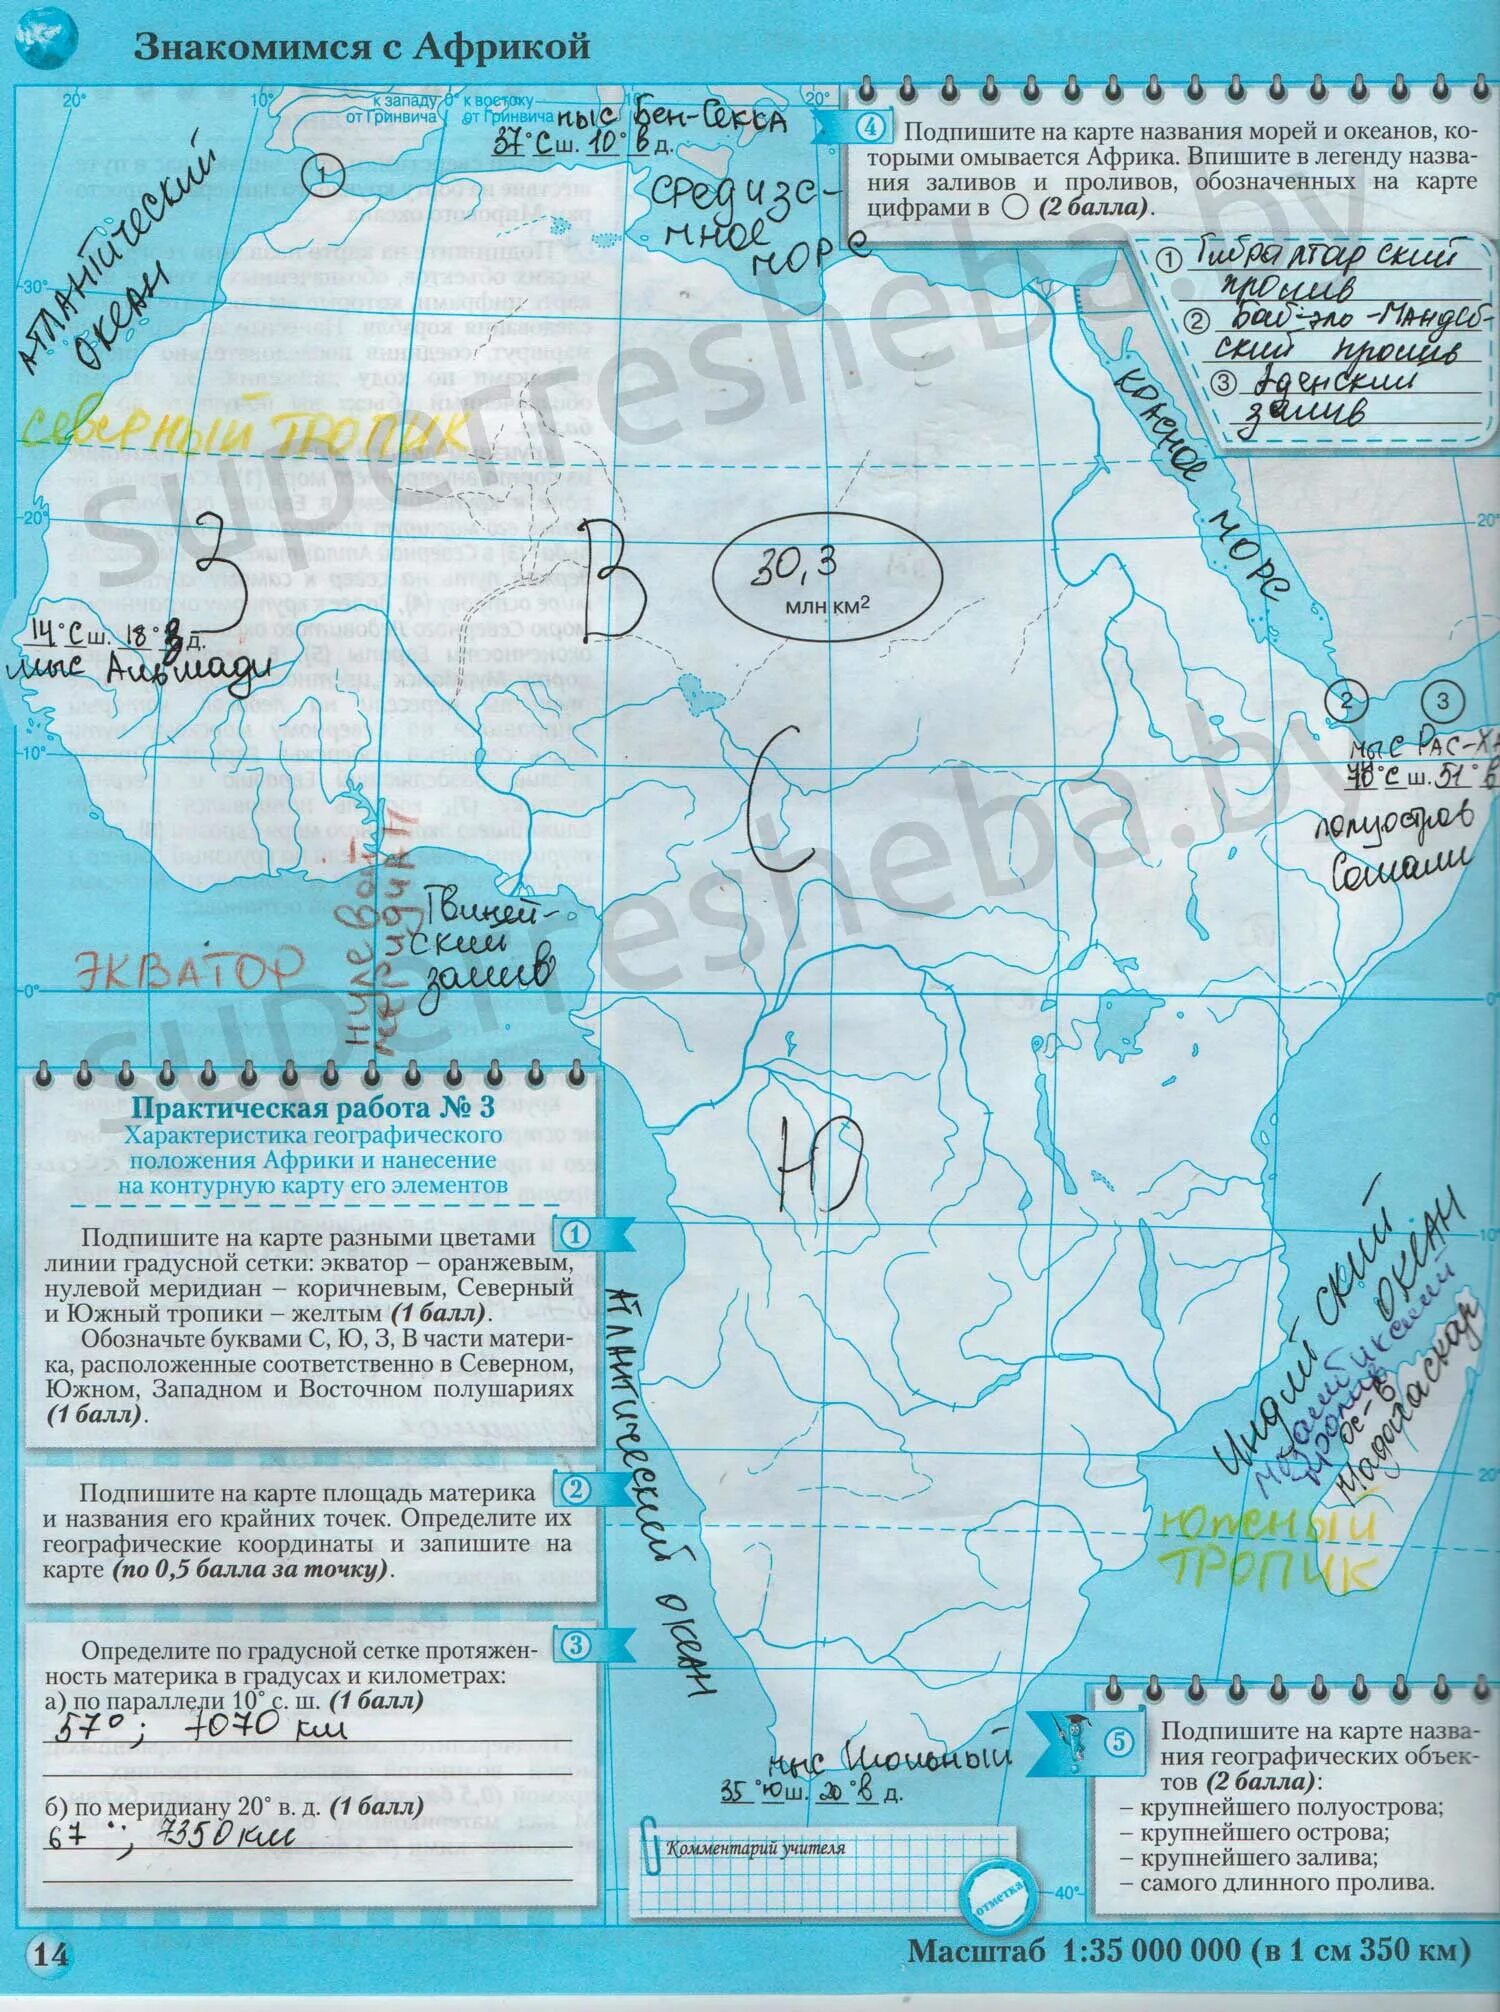 Знакомимся с Африкой
20°
10°
к западу 0° к востоку
от Гринвича от Гринвича
10°
20°
мыс Бен-Секка
37°С ш. 10°в д.
Атлантический
океан
1
Средизе-
мное
море
4
Подпишите на карте названия морей и океанов, ко-
торыми омывается Африка. Впишите в легенду назва-
ния заливов и проливов, обозначенных на карте
цифрами в ○ (2 балла).
1 Гибралтарский
пролив
2 Баб-эль-Мандеб-
ский пролив
3 Аденский
залив
30°
Северный тропик
Красное
море
20°
20°
З
В
30,3
млн км²
14°С ш. 18°З д.
мыс Альмади
2
3
10°
мыс Рас-Ха
10°С ш. 51°в
полуостров
Сомали
С
нулевой
меридиан
Гвиней-
ский
залив
ЭКВАТОР
0°
0°
superresheba.by
superresheba.by
Практическая работа № 3
Характеристика географического
положения Африки и нанесение
на контурную карту его элементов
1
Подпишите на карте разными цветами
линии градусной сетки: экватор – оранжевым,
нулевой меридиан – коричневым, Северный
и Южный тропики – желтым (1 балл).
Обозначьте буквами С, Ю, З, В части матери-
ка, расположенные соответственно в Северном,
Южном, Западном и Восточном полушариях
(1 балл).
Ю
10°
Атлантический океан
Индийский
океан
Мозамбикский
пролив
ос-в
Мадагаскар
20°
Южный
тропик
2
Подпишите на карте площадь материка
и названия его крайних точек. Определите их
географические координаты и запишите на
карте (по 0,5 балла за точку).
3
Определите по градусной сетке протяжен-
ность материка в градусах и километрах:
а) по параллели 10° с. ш. (1 балл)
57°; 7070 км
б) по меридиану 20° в. д. (1 балл)
67°; 7350 км
мыс Игольный
35°ю ш. 20°в д.
Комментарий учителя
отметка
40°
5
Подпишите на карте назва-
ния географических объек-
тов (2 балла):
– крупнейшего полуострова;
– крупнейшего острова;
– крупнейшего залива;
– самого длинного пролива.
14
Масштаб 1:35 000 000 (в 1 см 350 км)